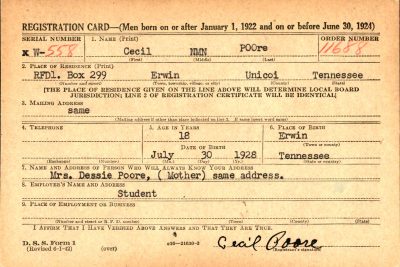 REGISTRATION CARD—(Men born on or after January 1, 1922 and on or before June 30, 1924)
SERIAL NUMBER 1. NAME (Print) ORDER NUMBER
x W-558 Cecil NMN POOre 11688
(First) (Middle) (Last)
2. PLACE OF RESIDENCE (Print)
RFD1. Box 299 Erwin Unicoi Tennessee
(Number and street) (Town, township, village, or city) (County) (State)
[THE PLACE OF RESIDENCE GIVEN ON THE LINE ABOVE WILL DETERMINE LOCAL BOARD
JURISDICTION; LINE 2 OF REGISTRATION CERTIFICATE WILL BE IDENTICAL]
3. MAILING ADDRESS
same
(Mailing address if other than place indicated on line 2. If same insert word same)
4. TELEPHONE 5. AGE IN YEARS 6. PLACE OF BIRTH
18 Erwin
DATE OF BIRTH (Town or county)
July 30 1928 Tennessee
(Exchange) (Number) (Mo.) (Day) (Yr.) (State or country)
7. NAME AND ADDRESS OF PERSON WHO WILL ALWAYS KNOW YOUR ADDRESS
Mrs. Dessie Poore, ( Mother) same address.
8. EMPLOYER'S NAME AND ADDRESS
Student
9. PLACE OF EMPLOYMENT OR BUSINESS
(Number and street or R. F. D. number) (Town) (County) (State)
I AFFIRM THAT I HAVE VERIFIED ABOVE ANSWERS AND THAT THEY ARE TRUE.
D. S. S. Form 1
(Revised 6-1-42) (over) Cecil Poore
(Registrant's signature)